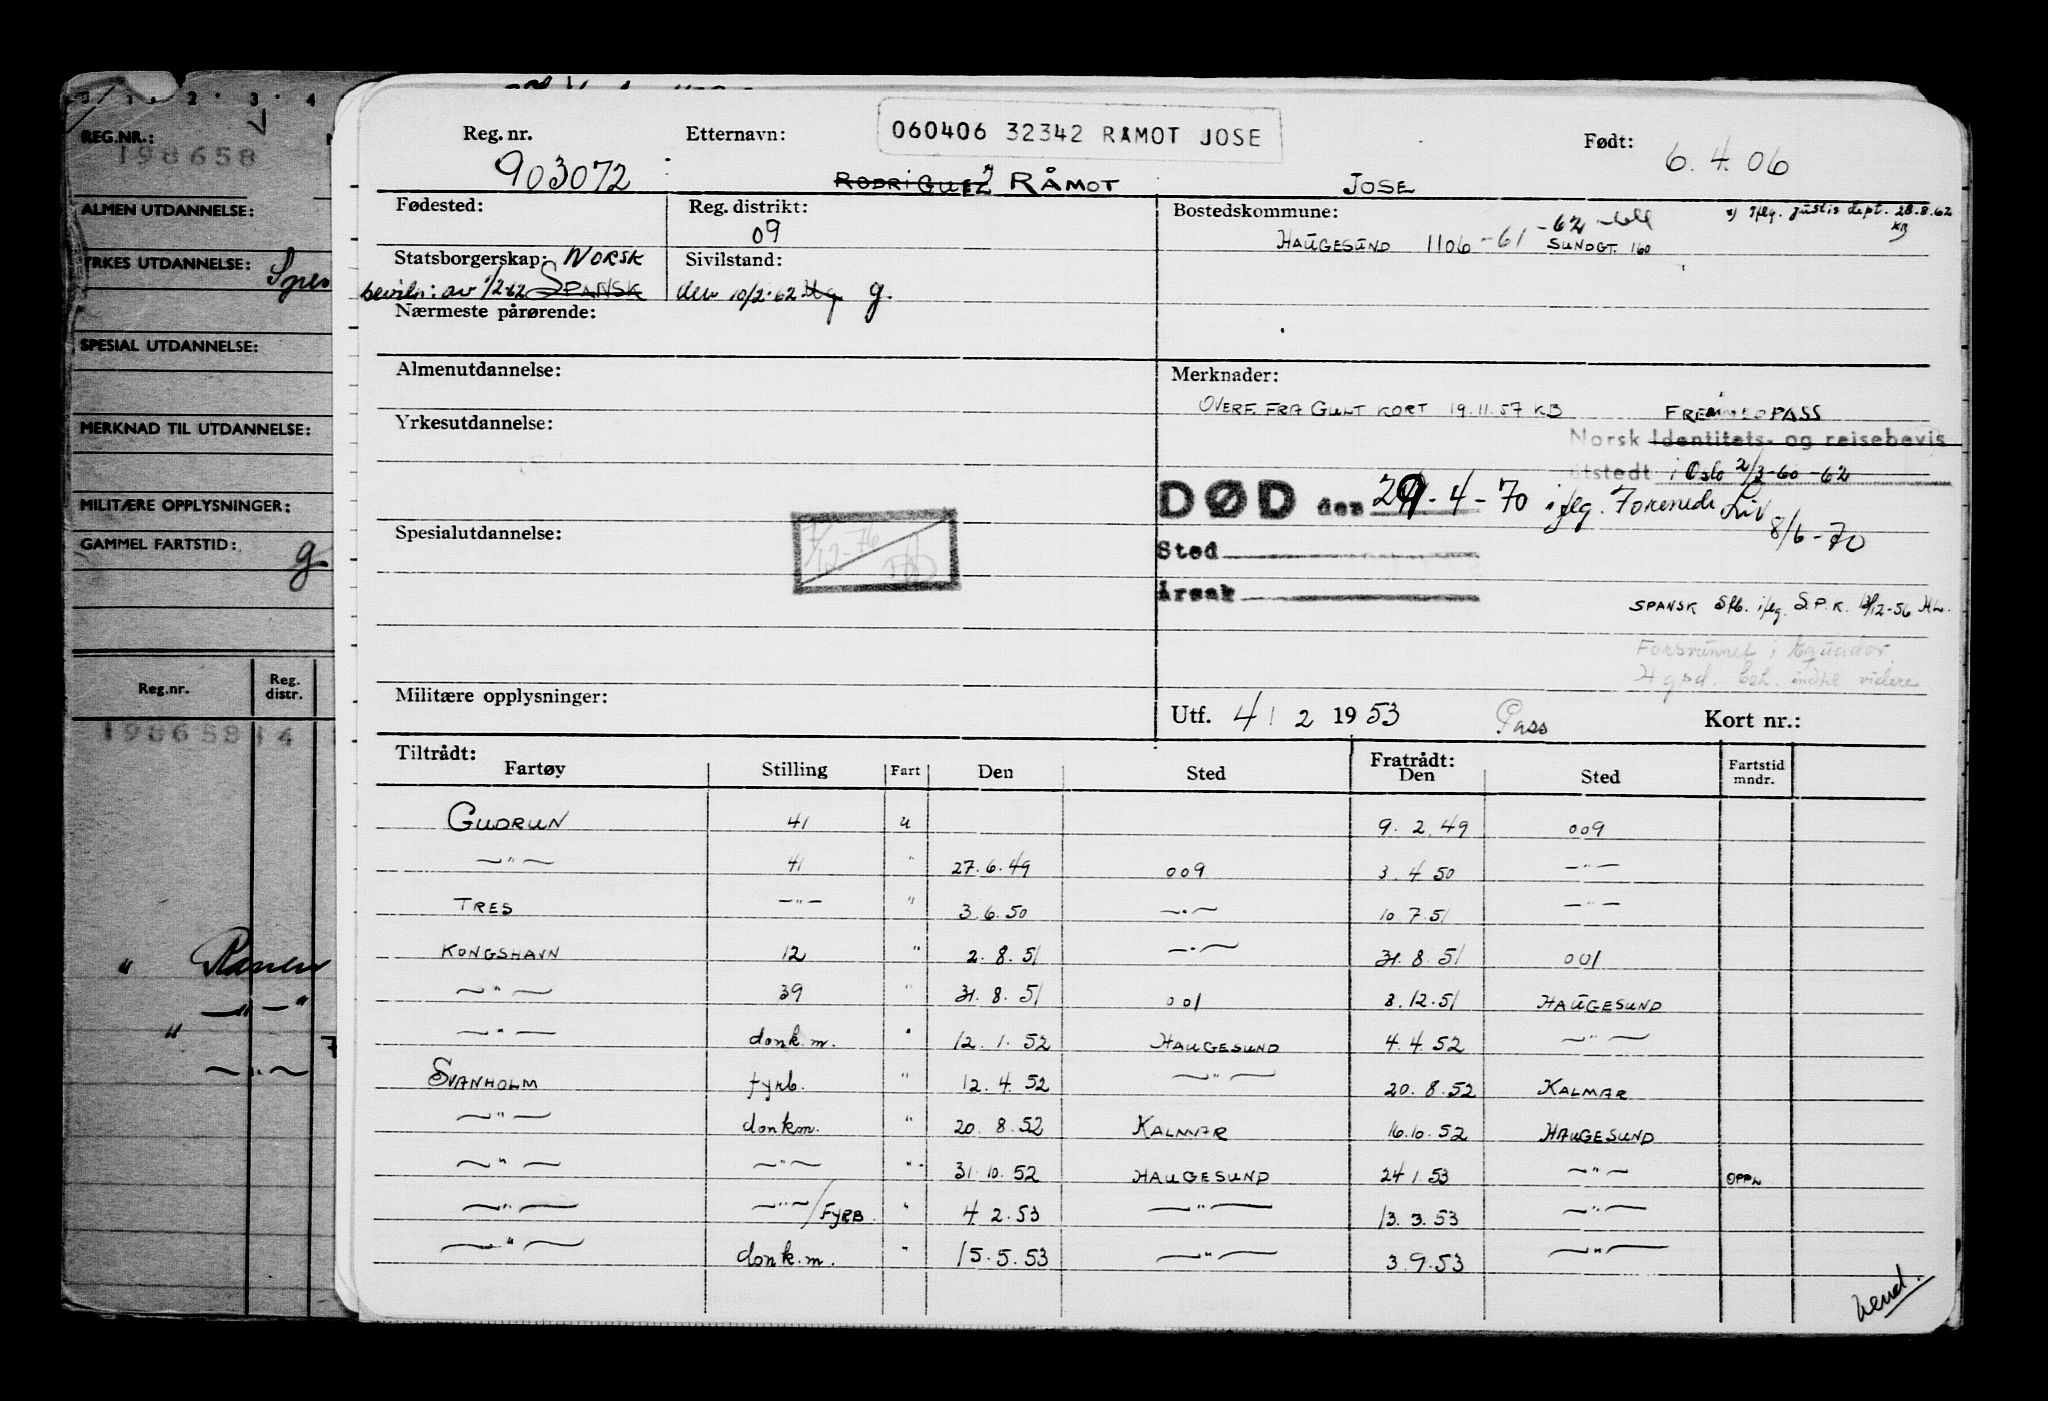 REG.NR.:
198658
ALMEN UTDANNELSE:
YRKES UTDANNELSE:
SPESIAL UTDANNELSE:
MERKNAD TIL UTDANNELSE:
MILITÆRE OPPLYSNINGER:
GAMMEL FARTSTID: g
Reg.nr. Reg. distr.
198658 14
Reg. nr. Etternavn: 060406 32342 RAMOT JOSE Født:
903072 RODRIGUEZ RÅMOT JOSE 6.4.06
Fødested: Reg. distrikt: Bostedskommune: x) iflg. justis dept. 28.8.62 KB
09 HAUGESUND 1106-61-62 SUNDGT. 160
Statsborgerskap: NORSK Sivilstand:
beviln: av 1/2-62 SPANSK den 10/2-62 g.
Nærmeste pårørende:
Almenutdannelse: Merknader:
OVERF. FRA GULT KORT 19.11.57 KB FREMMEDPASS
Yrkesutdannelse: Norsk Identitets- og reisebevis
utstedt i Oslo 2/3-60-62
DØD den 29-4-70 iflg. Forenede Liv 8/6-70
Spesialutdannelse: 7/12-76
Sted
Årsak
SPANSK Stb. iflg. S.P.K. 13/12-56 HL.
Forsvunnet i Equador.
indtil videre
Militære opplysninger: Utf. 4/2 1953 Pass Kort nr.:
Tiltrådt: Fratrådt:
Fartøy Stilling Fart Den Sted Den Sted Fartstid mndr.
GUDRUN 41 u 9.2.49 009
—"— 41 " 27.6.49 009 3.4.50 —"—
TRES —"— " 3.6.50 —"— 10.7.51 —"—
KONGSHAVN 12 " 2.8.51 —"— 31.8.51 001
—"— 39 " 31.8.51 001 3.12.51 HAUGESUND
—"— donk.m. " 12.1.52 HAUGESUND 4.4.52 —"—
SVANHOLM fyrb. " 12.4.52 —"— 20.8.52 KALMAR
—"— donkm. " 20.8.52 KALMAR 16.10.52 HAUGESUND
—"— —"— " 31.10.52 HAUGESUND 24.1.53 —"— OPPL
—"— —"—/FYRB. " 4.2.53 —"— 13.3.53 —"—
—"— donk.m. " 15.5.53 —"— 3.9.53 —"—
Vend.